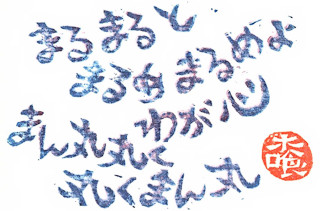 まるまると
まるめまるめよ
わが心
まん丸丸く
丸くまん丸
木喰